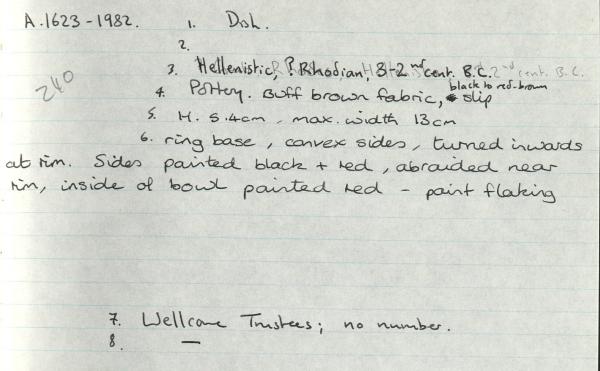 A.1623-1982. 1. Dish.
2.
3. Hellenistic, ? Rhodian, 3-2nd cent. B.C. 2nd cent. B.C.
240
black to red-brown
4. Pottery. Buff brown fabric, slip
5. H. 5.4cm, max. width 13cm
6. ring base, convex sides, turned inwards
at rim. Sides painted black + red, abraided near
rim, inside of bowl painted red - paint flaking
7. Wellcome Trustees; no number.
8. —